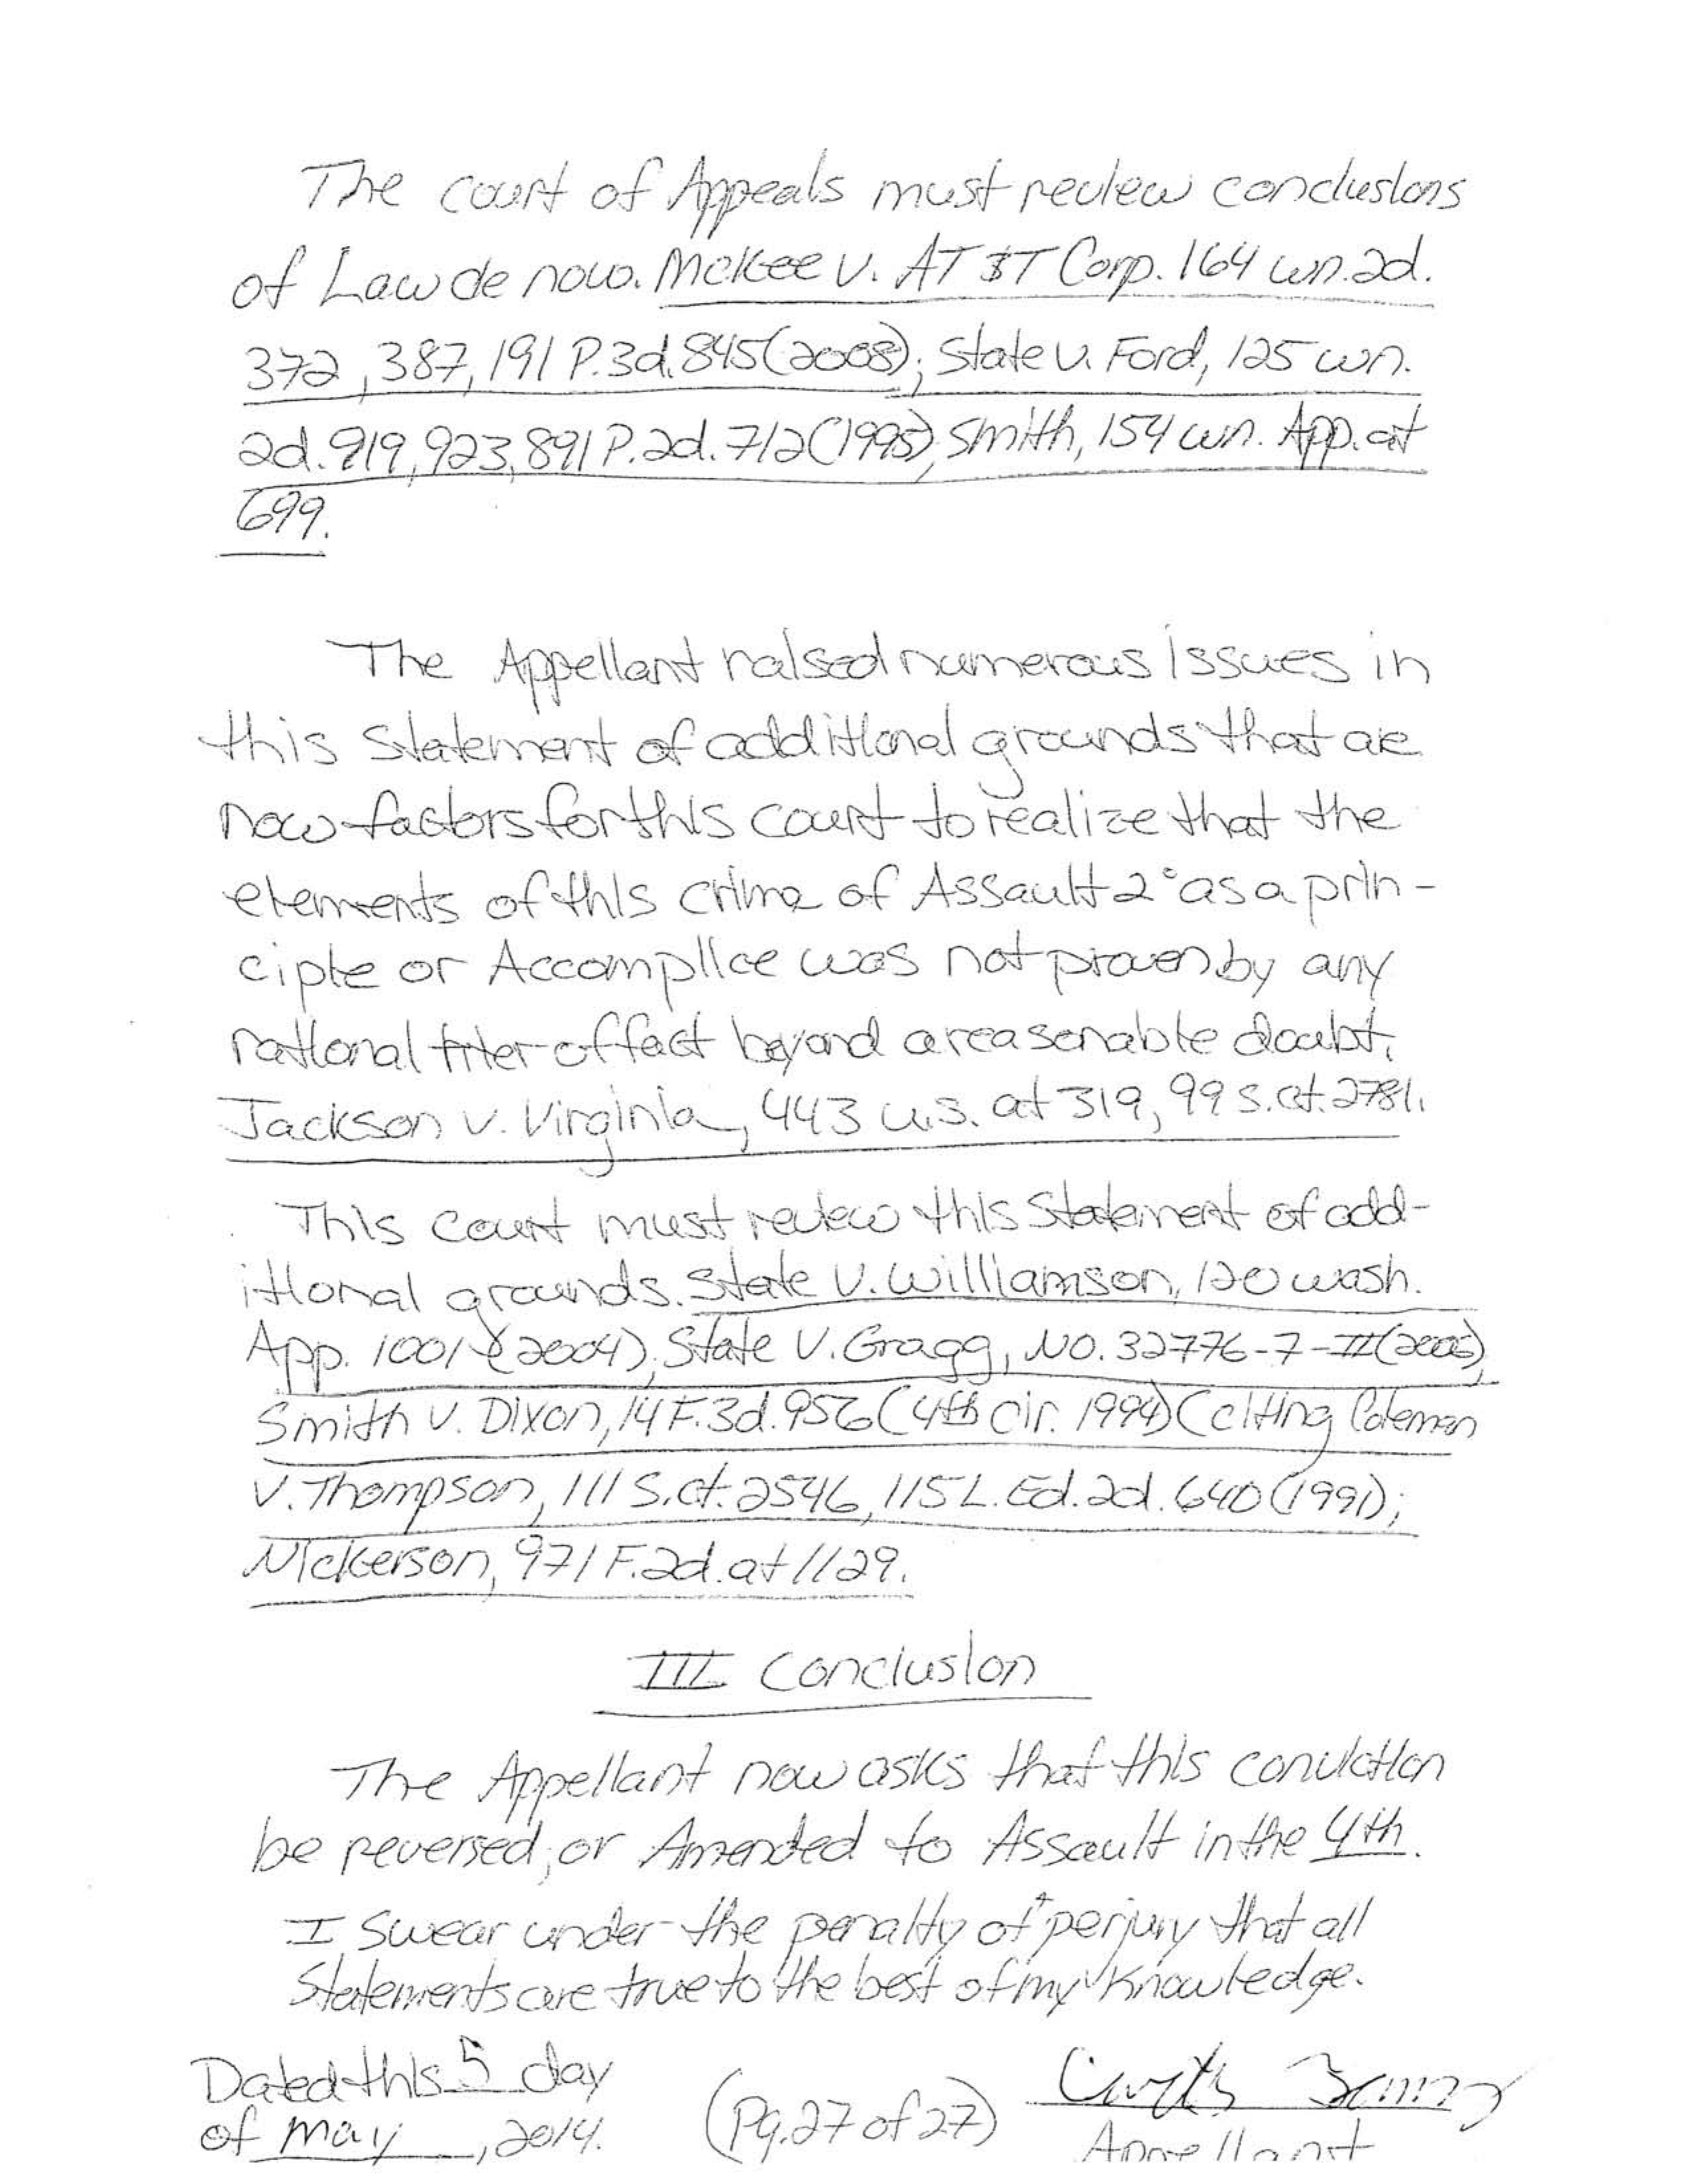 The court of Appeals must review conclusions
of Law de novo. McKee v. AT&T Corp. 164 wn.2d.
372, 387, 191 P.3d. 845 (2008); State v. Ford, 125 wn.
2d. 919, 923, 891 P.2d. 712 (1995), Smith, 154 wn. App. at
699.
The Appellant raised numerous issues in
this Statement of additional grounds that are
now factors for this court to realize that the
elements of this crime of Assault 2° as a prin-
ciple or Accomplice was not proven by any
rational trier of fact beyond a reasonable doubt.
Jackson v. Virginia, 443 U.S. at 319, 99 S.ct. 2781.
This Court must review this Statement of add-
itional grounds. State v. Williamson, 120 wash.
App. 1001 (2004), State v. Gragg, NO. 32776-7-III
Smith v. Dixon, 14 F.3d. 956 (4th cir. 1994) (citing Coleman
v. Thompson, 111 S.ct. 2546, 115 L.Ed.2d. 640 (1991);
Nickerson, 971 F.2d. at 1129.
III Conclusion
The Appellant now asks that this conviction
be reversed, or Amended to Assault in the 4th.
I swear under the penalty of perjury that all
Statements are true to the best of my knowledge.
Dated this 5 day
of May, 2014.
(Pg. 27 of 27)
Curtis
Appellant